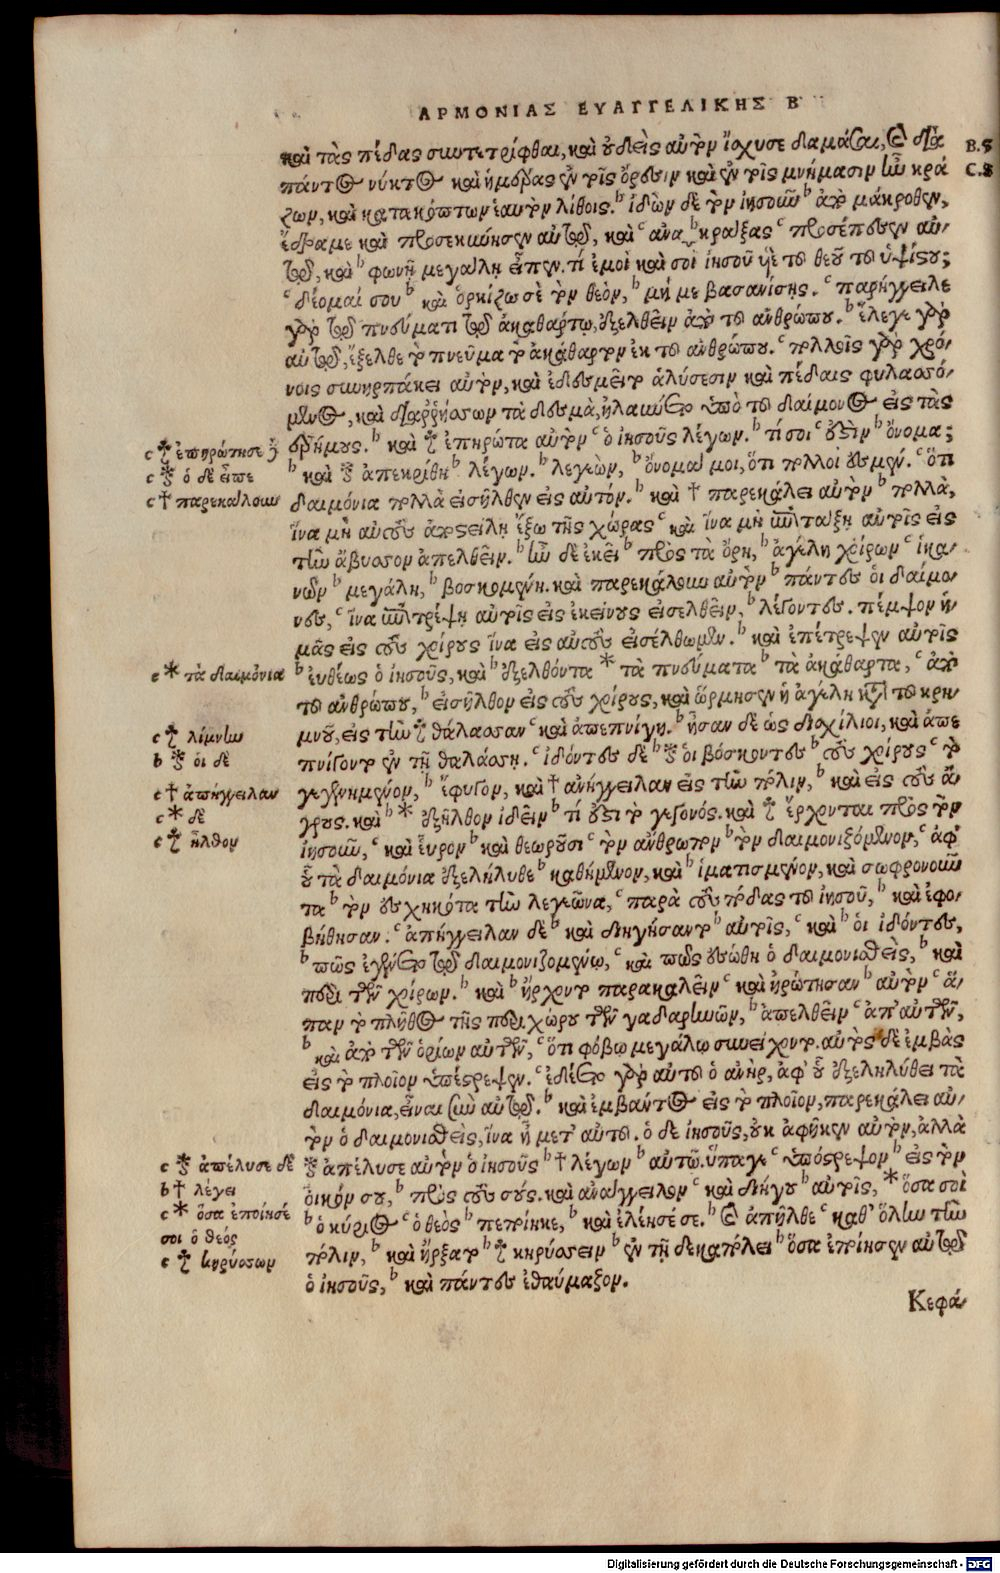 ΑΡΜΟΝΙΑΣ ΕΥΑΓΓΕΛΙΚΗΣ Β
καὶ τὰς πέδας συντετρίφθαι, καὶ οὐδεὶς αὐτὸν ἴσχυσε δαμάσαι, καὶ διὰ
B.
C.
παντὸς νυκτὸς καὶ ἡμέρας ἐν τοῖς ὄρεσιν καὶ ἐν τοῖς μνήμασιν ἦν κρά
ζων, καὶ κατακόπτων ἑαυτὸν λίθοις. b ἰδὼν δὲ τὸν ἰησοῦν b ἀπὸ μάκροθεν,
ἔδραμε καὶ προσεκύνησεν αὐτῷ, καὶ c ἀνα b κράξας c προσέπεσεν αὐ/
τῷ, καὶ b φωνῇ μεγάλῃ εἶπεν. τί ἐμοὶ καὶ σοὶ ἰησοῦ υἱὲ τοῦ θεοῦ τοῦ ὑψίστου;
c δέομαί σου b καὶ ὁρκίζω σὲ τὸν θεόν, b μή με βασανίσῃς. c παρήγγειλε
γὰρ τῷ πνεύματι τῷ ἀκαθάρτῳ, ἐξελθεῖν ἀπὸ τοῦ ἀνθρώπου. b ἔλεγε γὰρ
αὐτῷ, ἔξελθε τὸ πνεῦμα τὸ ἀκάθαρτον ἐκ τοῦ ἀνθρώπου. c πολλοῖς γὰρ χρό/
νοις συνηρπάκει αὐτὸν, καὶ ἐδεσμεῖτο ἁλύσεσιν καὶ πέδαις φυλασσό/
μενος, καὶ διαῤῥήσσων τὰ δεσμὰ, ἠλαύνετο ὑπὸ τοῦ δαίμονος εἰς τὰς
ἐρήμους. b καὶ ἐπηρώτα αὐτὸν c ὁ ἰησοῦς λέγων. b τί σοι c ἐστὶν b ὄνομα;
c ἐπηρώτησε δὲ
b καὶ ἀπεκρίθη b λέγων. b λεγεὼν, b ὄνομά μοι, ὅτι πολλοί ἐσμεν. c ὅτι
c ὁ δὲ εἶπε
δαιμόνια πολλὰ εἰσῆλθεν εἰς αὐτόν. b καὶ † παρεκάλει αὐτὸν b πολλὰ,
c † παρεκάλουν
ἵνα μὴ αὐτοὺς ἀποστείλῃ ἔξω τῆς χώρας c καὶ ἵνα μὴ ἐπιτάξῃ αὐτοῖς εἰς
τὴν ἄβυσσον ἀπελθεῖν. b ἦν δὲ ἐκεῖ b πρὸς τὰ ὄρη, b ἀγέλη χοίρων c ἱκα/
νῶν b μεγάλη, b βοσκομένη. καὶ παρεκάλουν αὐτὸν b πάντες οἱ δαίμο/
νες, c ἵνα ἐπιτρέψῃ αὐτοῖς εἰς ἐκείνους εἰσελθεῖν, b λέγοντες. πέμψον ἡ/
μᾶς εἰς τοὺς χοίρους ἵνα εἰς αὐτοὺς εἰσέλθωμεν. b καὶ ἐπέτρεψεν αὐτοῖς
b ἐυθέως ὁ ἰησοῦς, καὶ b ἐξελθόντα * τὰ πνεύματα b τὰ ἀκάθαρτα, c ἀπὸ
c * τὰ δαιμόνια
τοῦ ἀνθρώπου, b εἰσῆλθον εἰς τοὺς χοίρους, καὶ ὥρμησεν ἡ ἀγέλη κατὰ τοῦ κρη/
μνοῦ, εἰς τὴν θάλασσαν c καὶ ἀπεπνίγη. b ἦσαν δὲ ὡς δισχίλιοι, καὶ ἀπε
c λίμνην
πνίγοντο ἐν τῇ θαλάσσῃ. c ἰδόντες δὲ b οἱ βόσκοντες b τοὺς χοίρους c τὸ
b οἱ δὲ
γεγενημένον, b ἔφυγον, καὶ † ἀνήγγειλαν εἰς τὴν πόλιν, b καὶ εἰς τοὺς ἀ/
c † ἀπήγγειλαν
γρους. καὶ b * ἐξῆλθον ἰδεῖν b τί ἐστι τὸ γεγονός. καὶ ἔρχονται πρὸς τὸν
c * δὲ
ἰησοῦν, c καὶ εὗρον b καὶ θεωροῦσι c τὸν ἄνθρωπον b τὸν δαιμονιζόμενον, c ἀφ'
c ἦλθον
οὗ τὰ δαιμόνια ἐξελήλυθε b καθήμενον, καὶ b ἱματισμένον, καὶ σωφρονοῦν
τα b τὸν ἐσχηκότα τὴν λεγεῶνα, c παρὰ τοὺς πόδας τοῦ ἰησοῦ, b καὶ ἐφο/
βήθησαν. c ἀπήγγειλαν δὲ b καὶ διηγήσαντο b αὐτοῖς, c καὶ b οἱ ἰδόντες,
b πῶς ἐγένετο τῷ δαιμονιζομένῳ, c καὶ πῶς ἐσώθη ὁ δαιμονισθεὶς, b καὶ
περὶ τῶν χοίρων. b καὶ b ἤρχοντο παρακαλεῖν c καὶ ἠρώτησαν b αὐτὸν c ἅ/
παν τὸ πλῆθος τῆς περιχώρου τῶν γαδαρηνῶν, b ἀπελθεῖν c ἀπ' αὐτῶν,
b καὶ ἀπὸ τῶν ὁρίων αὐτῶν, c ὅτι φόβῳ μεγάλῳ συνείχοντο. αὐτὸς δὲ ἐμβὰς
εἰς τὸ πλοῖον ὑπέστρεψεν. c ἐδέετο γὰρ αὐτοῦ ὁ ἀνὴρ, ἀφ' οὗ ἐξεληλύθει τὰ
δαιμόνια, εἶναι σὺν αὐτῷ. b καὶ ἐμβάντος εἰς τὸ πλοῖον, παρεκάλει αὐ/
τὸν ὁ δαιμονισθεὶς, ἵνα ᾖ μετ' αὐτοῦ. ὁ δὲ ἰησοῦς, οὐκ ἀφῆκεν αὐτὸν, ἀλλὰ
ἀπέλυσε αὐτὸν ὁ ἰησοῦς b † λέγων b αὐτῷ. ὕπαγε c ὑπόστρεψον b εἰς τὸν
c ἀπέλυσε δὲ
οἶκόν σου, b πρὸς τοὺς σούς. καὶ ἀνάγγειλον c καὶ διηγοῦ b αὐτοῖς, * ὅσα σοὶ
b † λέγει
b ὁ κύριος c ὁ θεὸς b πεποίηκε, b καὶ ἐλέησέ σε. b καὶ ἀπῆλθε c καθ' ὅλην τὴν
c * ὅσα ἐποίησέ
σοι ὁ θεός
πόλιν, b καὶ ἤρξατο b κηρύσσειν b ἐν τῇ δεκαπόλει b ὅσα ἐποίησεν αὐτῷ
c κηρύσσων
ὁ ἰησοῦς, b καὶ πάντες ἐθαύμαζον.
Κεφά/
Digitalisierung gefördert durch die Deutsche Forschungsgemeinschaft - DFG